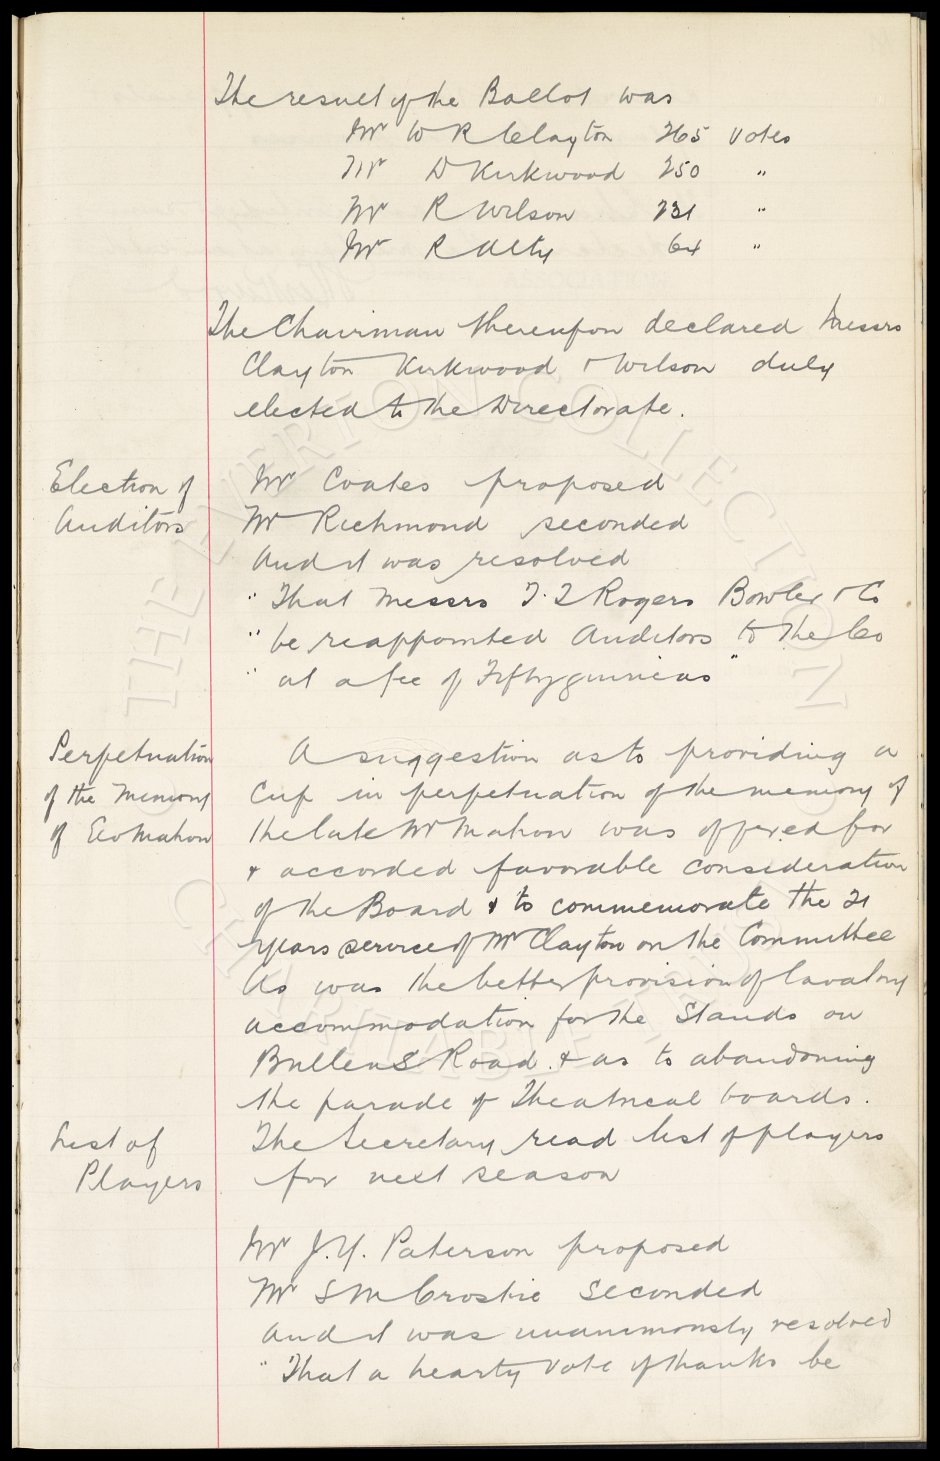 The result of the Ballot was
Mr W R Clayton 265 votes
Mr D Kirkwood 250 "
Mr R Wilson 231 "
Mr R Alty 64 "
The Chairman thereupon declared Messrs
Clayton Kirkwood & Wilson duly
elected to the Directorate.
Election of
Auditors
Mr Coates proposed
Mr Richmond seconded
And it was resolved
" That Messrs T. T Rogers Bowler & Co
" be reappointed Auditors to the Co
" at a fee of Fifty guineas "
Perpetuation
of the Memory
of Geo Mahon
A suggestion as to providing a
Cup in perpetuation of the memory of
the late Mr Mahon was offered for
& accorded favorable consideration
of the Board & to commemorate the 21
years service of Mr Clayton on the Committee
As was the better provision of lavatory
accommodation for the Stands on
Bullens Road. & as to abandoning
the parade of Theatrical boards.
List of
Players
The Secretary read list of players
for next season
Mr J. Y. Paterson proposed
Mr S M Crosbie Seconded
And it was unanimously resolved
" That a hearty vote of thanks be
THE EVERTON COLLECTION
CHARITABLE TRUST